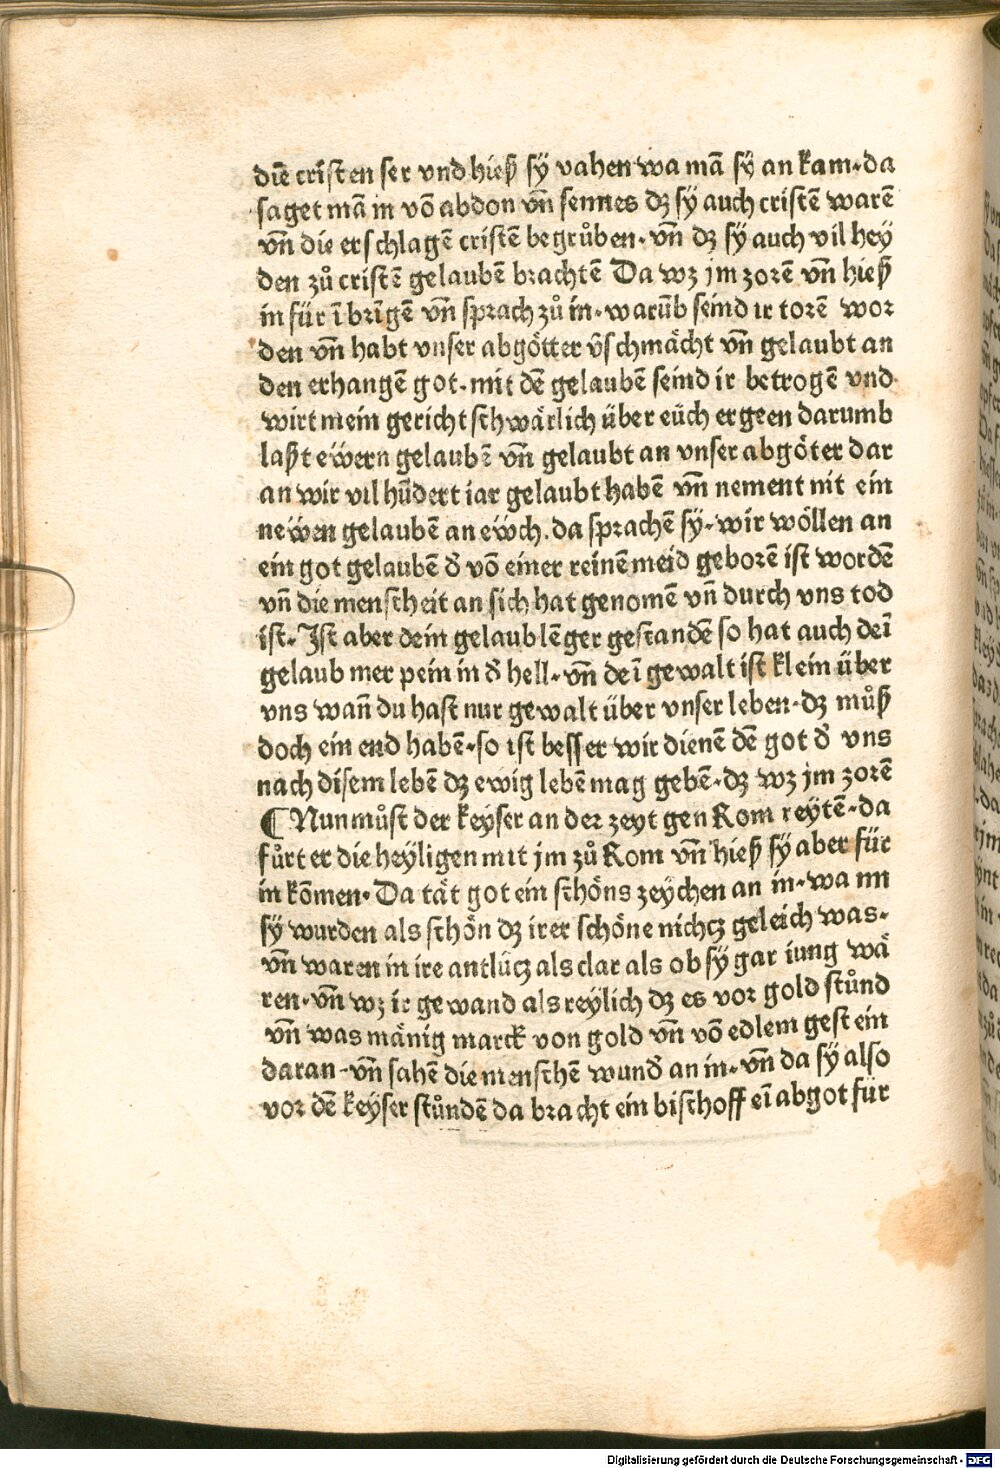 die cristen ser vnd hieß sÿ vahen wa mā sÿ an kam·da
saget mā in vō abdon vn̄ sennes dʒ sÿ auch cristē warē
vn̄ die erschlagē cristē begrůben·vn̄ dʒ sÿ auch vil hey
den zů cristē gelaubē brachtē Da wʒ jm zorē vn̄ hieß
in für ī brīgē vn̄ sprach zů in·warūb seind ir torē wor
den vn̄ habt vnser abgötter v̄schmächt vn̄ gelaubt an
den erhangē got·mit dē gelaubē seind ir betrogē vnd
wirt mein gericht schwärlich über eüch ergeen darumb
laßt eẅern gelaubē vn̄ gelaubt an vnser abgöter dar
an wir vil hūdert iar gelaubt habē vn̄ nement nit ein
neẅen gelaubē an eẅch·da sprachē sÿ·wir wöllen an
ein got gelaubē d̄ vō einer reinē meid geborē ist wordē
vn̄ die menscheit an sich hat genomē vn̄ durch vns tod
ist·Ist aber dein gelaub lēger gestandē so hat auch deī
gelaub mer pein in d̄ hell·vn̄ deī gewalt ist klein über
vns wan̄ du hast nur gewalt über vnser leben·dʒ můß
doch ein end habē·so ist besser wir dienē dē got d̄ vns
nach disem lebē dʒ ewig lebē mag gebē·dʒ wʒ jm zorē
¶ Nun můst der keyser an der zeyt gen Rom reytē·da
fůrt er die heyligen mit jm zů Rom vn̄ hieß sÿ aber für
in kōmen·Da tät got ein schöns zeychen an in·wa nn
sÿ wurden als schön dʒ irer schöne nichcz geleich was·
vn̄ waren in ire antlücz als clar als ob sÿ gar iung wä
ren·vn̄ wʒ ir gewand als reylich dʒ es vor gold stůnd
vn̄ was mänig marck von gold vn̄ vō edlem gestein
daran·vn̄ sahē die menschē wund̄ an in·vn̄ da sÿ also
vor dē keyser stůndē da bracht ein bischoff eī abgot für
Digitalisierung gefördert durch die Deutsche Forschungsgemeinschaft - DFG